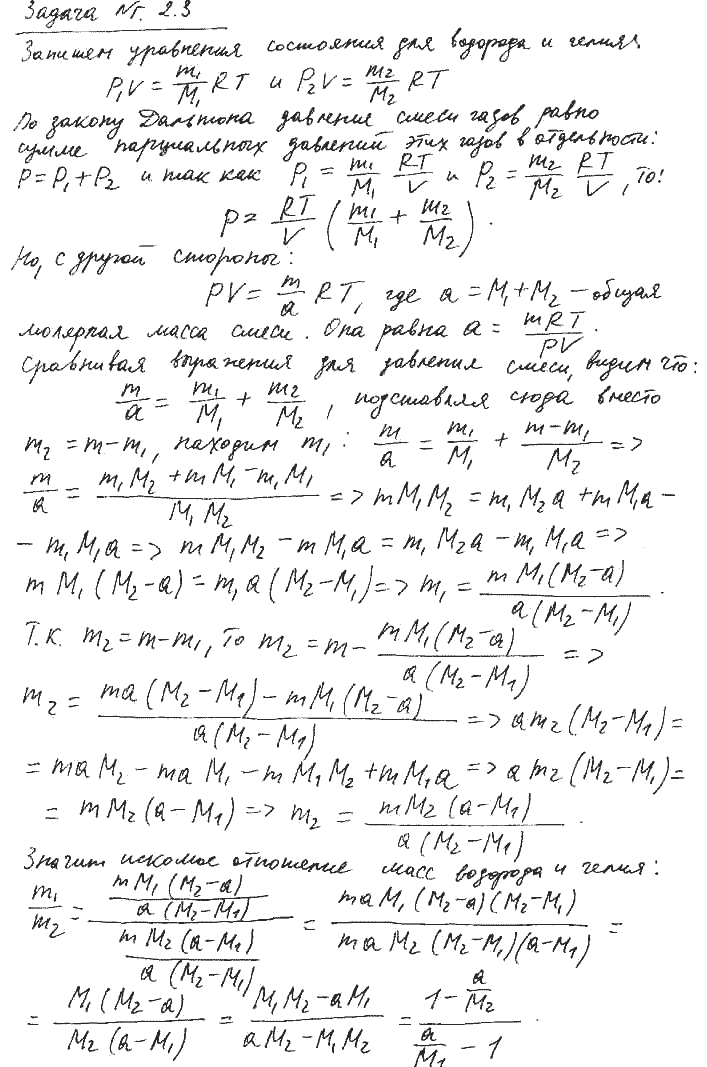 Задача №г. 2.3
Запишем уравнения состояния для водорода и гелия:
P₁V = m₁/M₁ RT и P₂V = m₂/M₂ RT
По закону Дальтона давление смеси газов равно
сумме парциальных давлений этих газов в отдельности:
P = P₁ + P₂ и так как P₁ = m₁/M₁ RT/V и P₂ = m₂/M₂ RT/V, то:
P = RT/V (m₁/M₁ + m₂/M₂).
Но, с другой стороны:
PV = m/a RT, где a = M₁ + M₂ – общая
молярная масса смеси. Она равна a = mRT/PV.
Сравнивая выражения для давления смеси, видим что:
m/a = m₁/M₁ + m₂/M₂, подставляя сюда вместо
m₂ = m – m₁, находим m₁: m/a = m₁/M₁ + (m – m₁)/M₂ =>
m/a = (m₁M₂ + mM₁ – m₁M₁)/(M₁M₂) => mM₁M₂ = m₁M₂a + mM₁a –
– m₁M₁a => mM₁M₂ – mM₁a = m₁M₂a – m₁M₁a =>
mM₁(M₂ – a) = m₁a(M₂ – M₁) => m₁ = mM₁(M₂ – a)/(a(M₂ – M₁)).
Т.к. m₂ = m – m₁, то m₂ = m – mM₁(M₂ – a)/(a(M₂ – M₁)) =>
m₂ = (ma(M₂ – M₁) – mM₁(M₂ – a))/(a(M₂ – M₁)) => am₂(M₂ – M₁) =
= maM₂ – maM₁ – mM₁M₂ + mM₁a => am₂(M₂ – M₁) =
= mM₂(a – M₁) => m₂ = mM₂(a – M₁)/(a(M₂ – M₁)).
Значит искомое отношение масс водорода и гелия:
m₁/m₂ = (mM₁(M₂ – a)/(a(M₂ – M₁)))/(mM₂(a – M₁)/(a(M₂ – M₁))) = maM₁(M₂ – a)(M₂ – M₁)/(maM₂(M₂ – M₁)(a – M₁)) =
= M₁(M₂ – a)/(M₂(a – M₁)) = (M₁M₂ – aM₁)/(aM₂ – M₁M₂) = (1 – a/M₂)/(a/M₁ – 1).